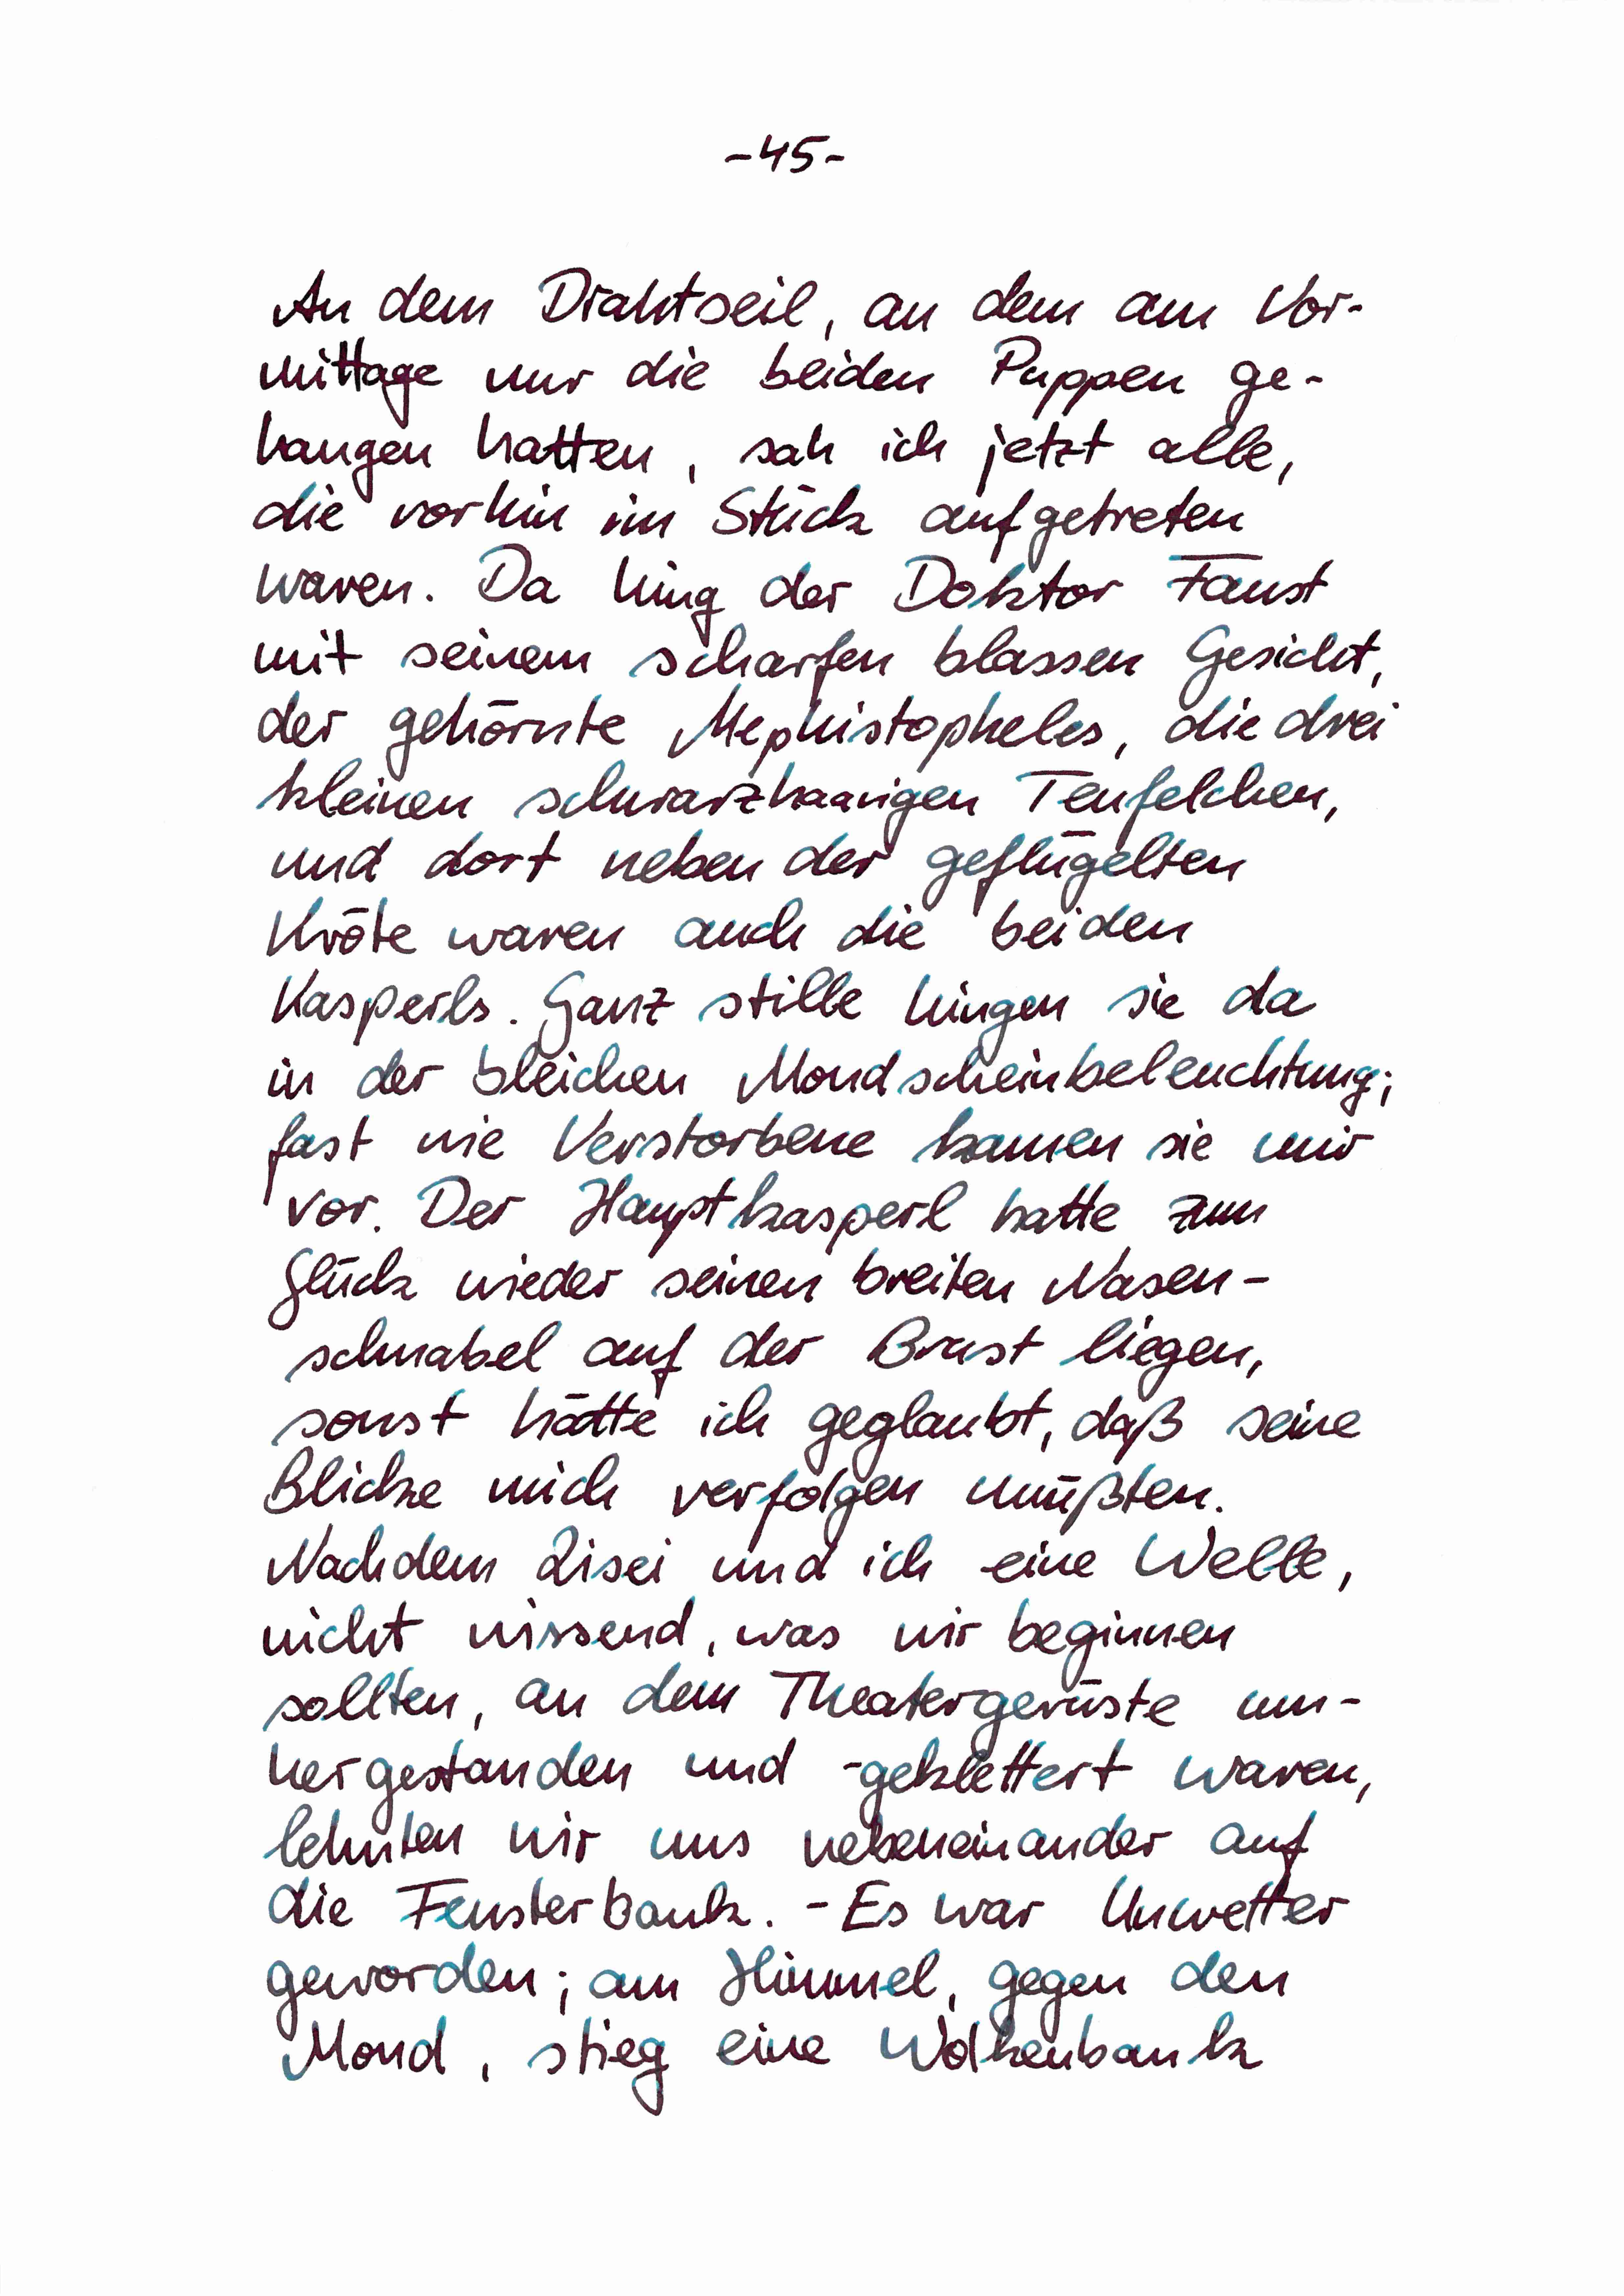 -45-
An dem Drahtseil, an dem am Vor-
mittage nur die beiden Puppen ge-
hangen hatten, sah ich jetzt alle,
die vorhin im Stück aufgetreten
waren. Da hing der Doktor Faust
mit seinem scharfen blassen Gesicht,
der gehörnte Mephistopheles, die drei
kleinen schwarzhaarigen Teufelchen,
und dort neben der geflügelten
Kröte waren auch die beiden
Kasperls. Ganz stille hingen sie da
in der bleichen Mondscheinbeleuchtung;
fast wie Verstorbene kamen sie mir
vor. Der Hauptkasperl hatte zum
Glück wieder seinen breiten Nasen-
schnabel auf der Brust liegen,
sonst hätte ich geglaubt, daß seine
Blicke mich verfolgen müßten.
Nachdem Lisei und ich eine Welle,
nicht wissend, was wir beginnen
sollten, an dem Theatergerüste um-
hergestanden und -geklettert waren,
lehnten wir uns nebeneinander auf
die Fensterbank. - Es war Unwetter
geworden; am Himmel, gegen den
Mond, stieg eine Wolkenbank